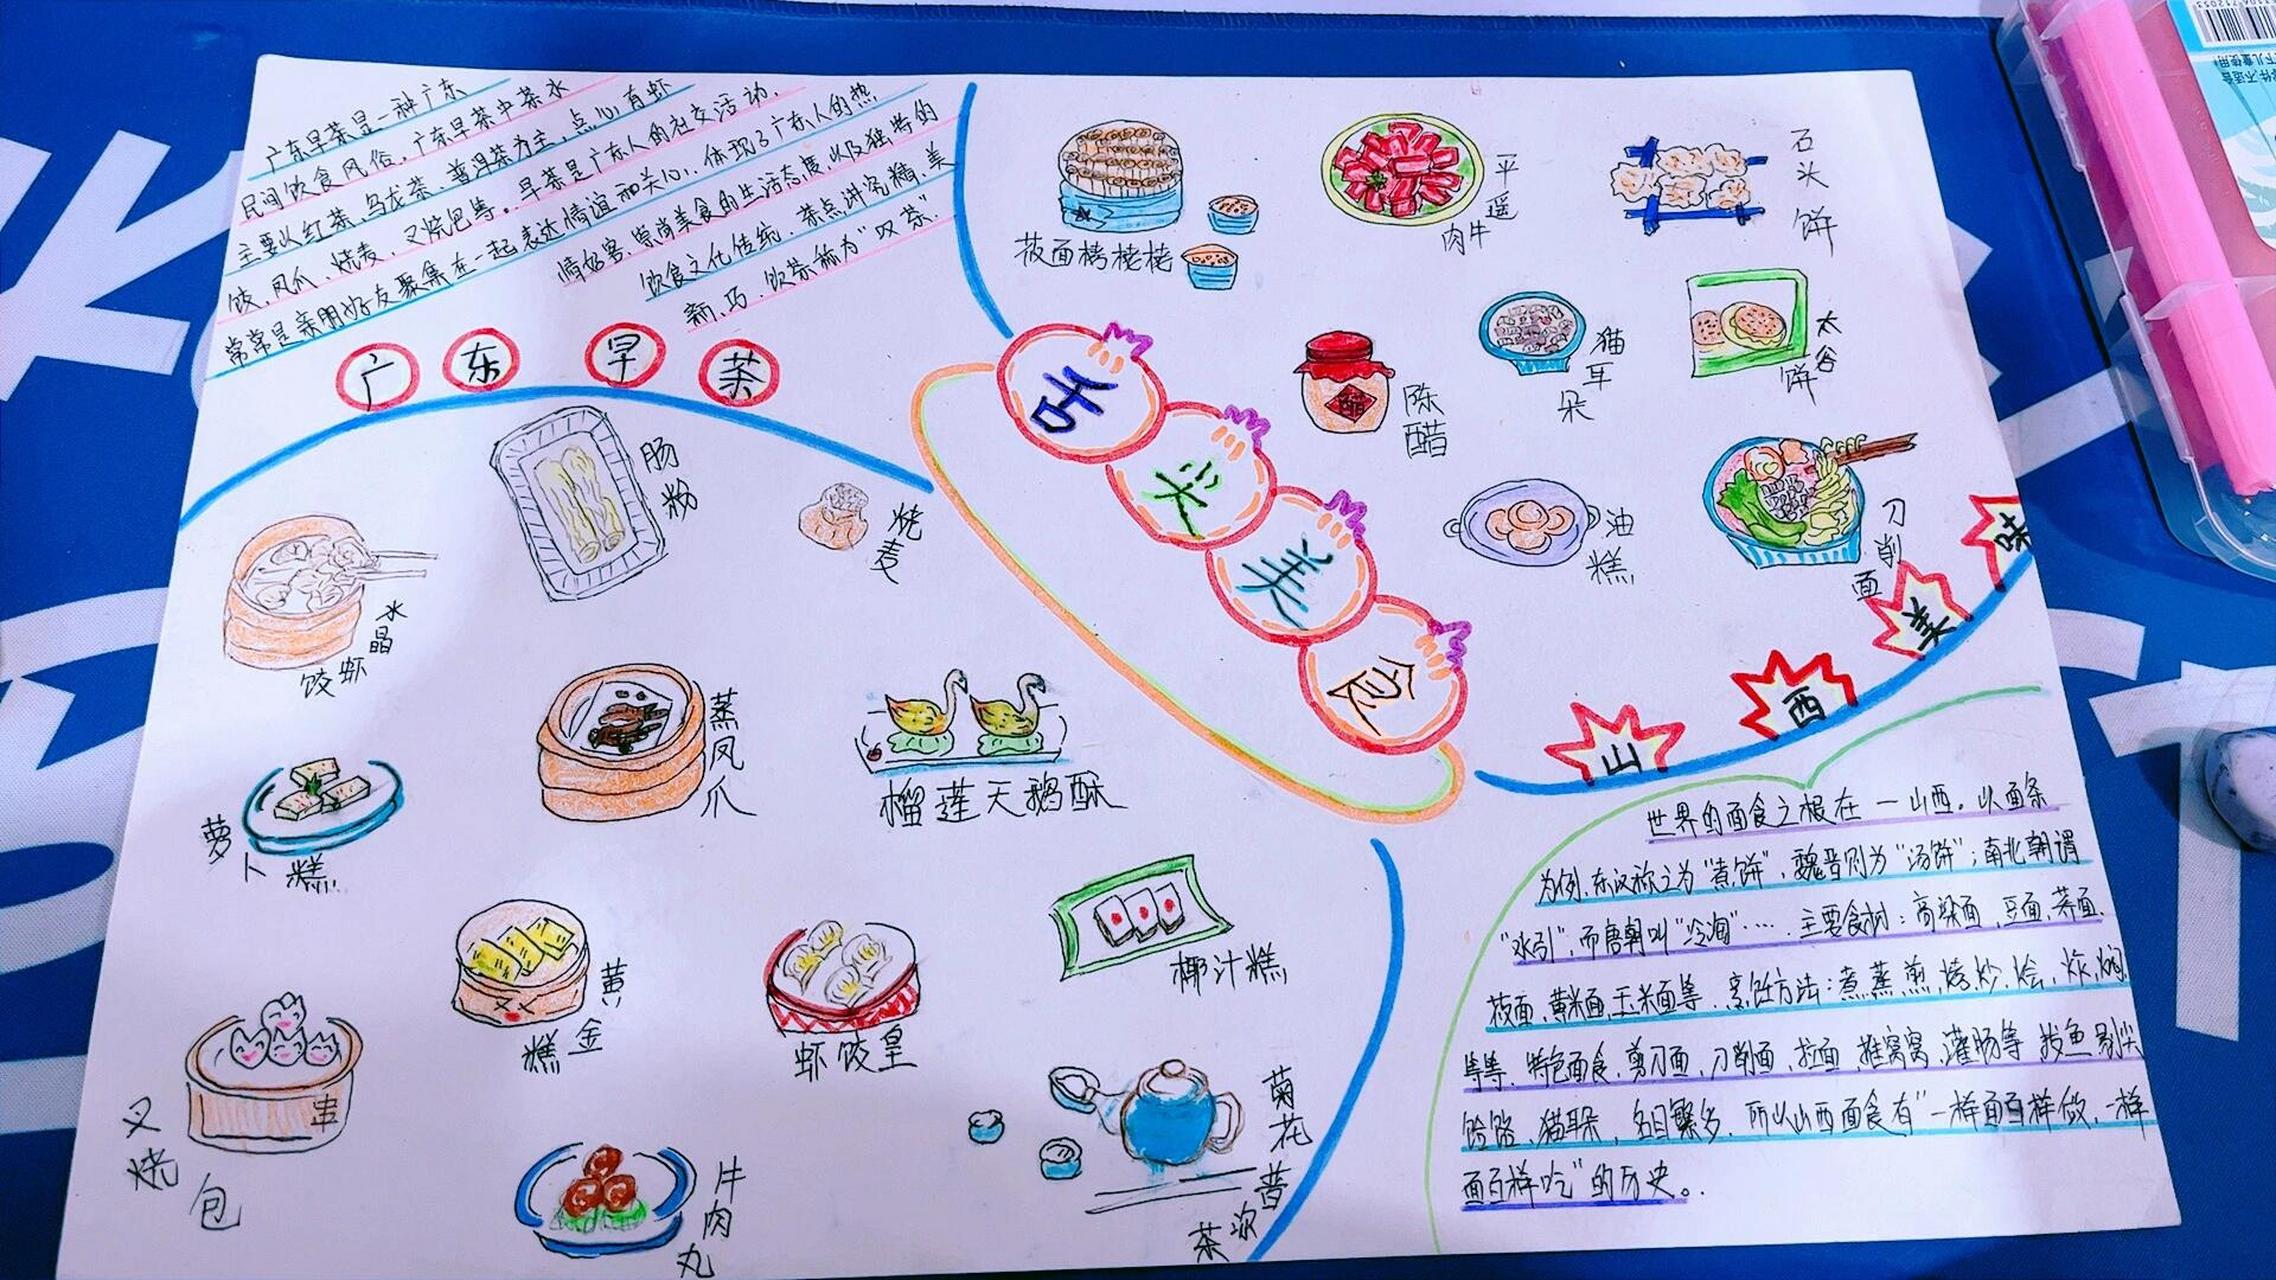 广东早茶是一种广东
民间饮食风俗。广东早茶中茶水
主要以红茶、乌龙茶、普洱茶为主，点心有虾
饺、凤爪、烧麦、叉烧包等。早茶是广东人的社交活动，
常常是亲朋好友聚集在一起表达情谊和关心，体现了广东人的热
情好客、崇尚美食的生活态度，以及独特的
饮食文化传统。茶点讲究精、美
新、巧，饮茶称为“叹茶”。
广东早茶
舌尖美食
莜面栲栳栳
平遥
牛肉
石头饼
陈醋
猫耳朵
太谷饼
油糕
刀削面
山西美味
肠粉
烧麦
水晶
虾饺
萝卜糕
蒸凤爪
榴莲天鹅酥
黄金糕
虾饺皇
椰汁糕
叉烧包
牛肉丸
菊花普洱茶
世界的面食之根在一山西。以面条
为例，东汉称之为“煮饼”，魏晋则为“汤饼”；南北朝谓
“水引”；而唐朝叫“冷淘”……主要食材：高粱面、豆面、荞面、
莜面、黄米面、玉米面等，烹饪方法：煮、蒸、煎、烤、炒、烩、炸、焖
等等，特色面食，剪刀面、刀削面、拉面、推窝窝、灌肠等 拨鱼 剔尖
饸饹、猫耳朵，名目繁多，所以山西面食有“一样面百样做，一样
面百样吃”的历史。